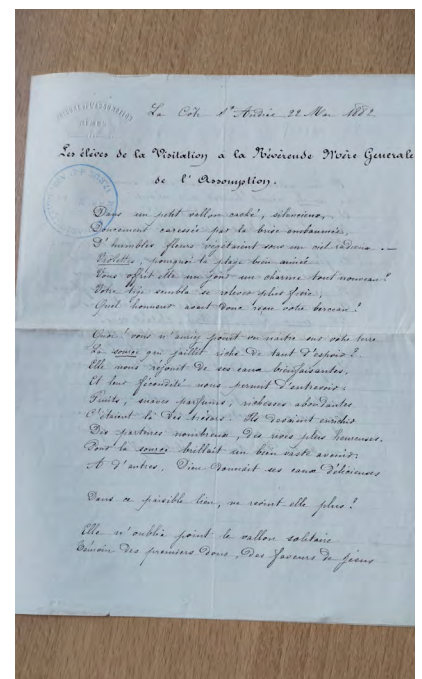 La Côte St André 22 Mai 1882
Les élèves de la Visitation à la Révérende Mère Générale
de l'Assomption.
Dans un petit vallon caché, silencieux,
Doucement caressée par la brise embaumée,
D'humbles fleurs végétaient sous un ciel radieux —
Violettes, pourquoi la plage bien aimée
Vous offrit elle un jour un charme tout nouveau?
Votre tige sembla se relever plus fière,
Quel honneur avait donc reçu votre berceau?
Quoi! vous n'auriez point vu naître sur votre terre
La source qui jaillit riche de tant d'espoir?
Elle nous réjouit de ses eaux bienfaisantes,
Et leur fécondité nous permit d'entrevoir.
Fruits, suaves parfums, richesses abondantes
C'étaient là des trésors. Ils devaient enrichir
Des parterres nombreux, des rives plus heureuses.
Pour la source brillait un bien vaste avenir:
A d'autres, Dieu donnait ses eaux délicieuses
Dans ce paisible lieu, ne vient elle plus?
Elle n'oublie point le vallon solitaire
Témoin des premiers dons, des faveurs de Jésus